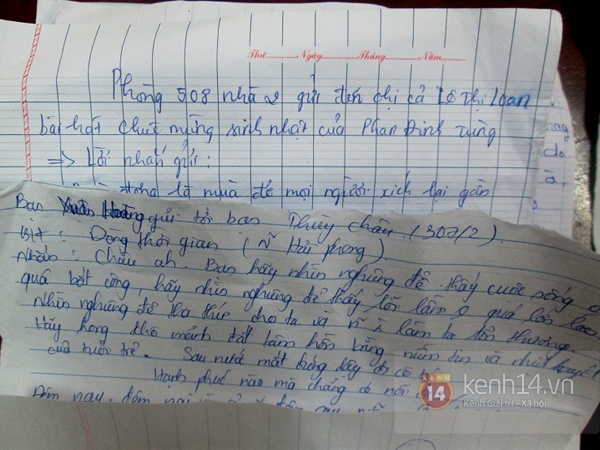 Thứ Ngày Tháng Năm
Phòng 508 nhà 2 gửi đến chị cả Lê Thị Loan
bài hát chúc mừng sinh nhật của Phan Đình Tùng
=> Lời nhắn gửi:
đông là mùa để mọi người xích lại gần
Bạn gửi tới bạn Thùy Châu. (307/2).
Bài: Dòng thời gian ( Hải phong)
Nhắn: Châu ah. Bạn hãy nhìn nghiêng để thấy cuộc sống
quá bất công, hãy nhìn nghiêng để thấy lỗi lầm quá lớn lao
Nhìn nghiêng để tha thứ cho ta và làm ta tổn thương
Hãy hong khô mảnh đất tâm hồn bằng niềm tin và
của tuổi trẻ. Sau nước mắt
Hạnh phúc nào mà chẳng có nỗi
Đêm nay, đêm
14 kenh14.vn
Kênh Giải trí - Xã hội